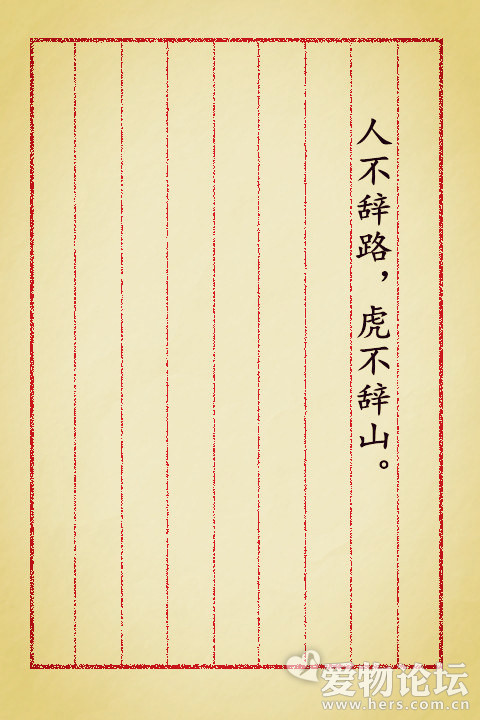 人不辞路，虎不辞山。
爱物论坛
www.hers.com.cn